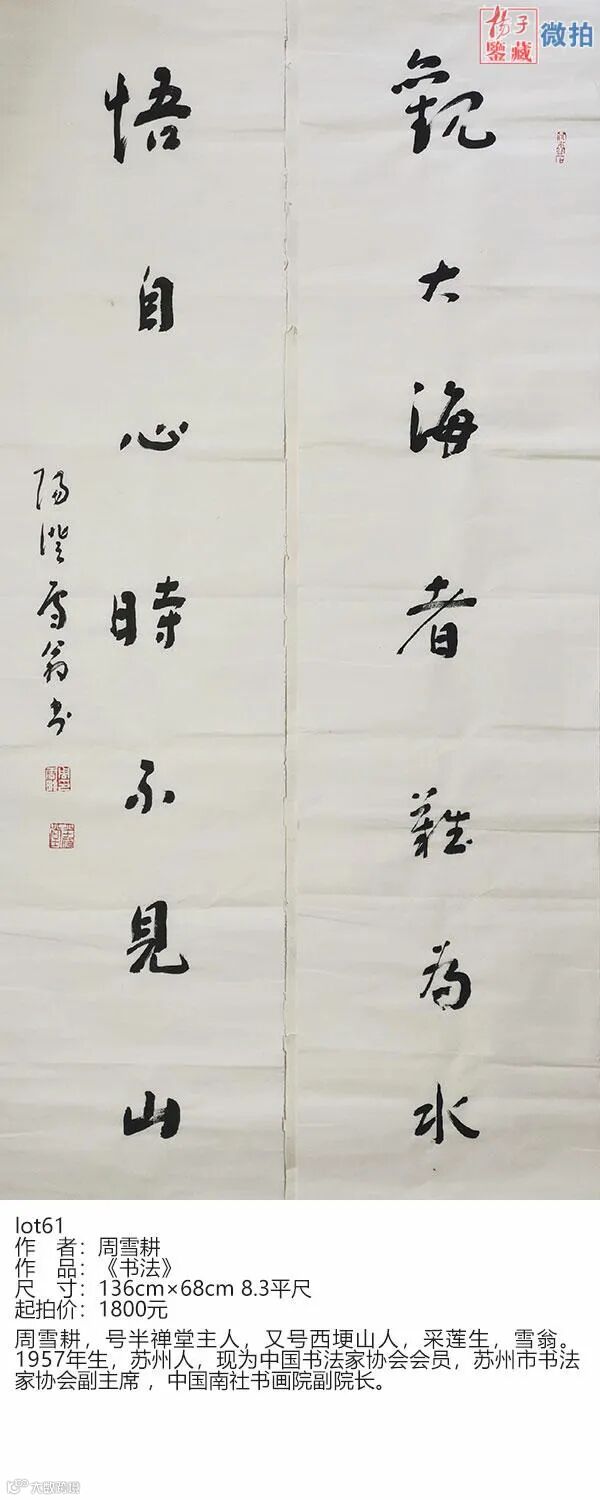 楊子
鑒藏
微拍
觀大海者難為水
悟自心時不見山
陽澄雪翁書
lot61
作 者：周雪耕
作 品：《书法》
尺 寸：136cm×68cm 8.3平尺
起拍价：1800元
周雪耕，号半禅堂主人，又号西埂山人，采莲生，雪翁。
1957年生，苏州人，现为中国书法家协会会员，苏州市书法
家协会副主席 ，中国南社书画院副院长。
大数跨境